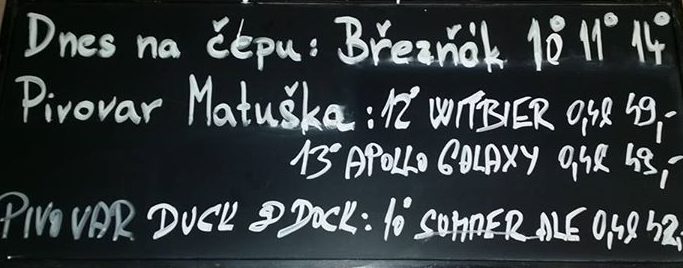 Dnes na čepu: Březňák 10° 11° 14°
Pivovar Matuška: 12° WITBIER 0,4l 49,-
13° APOLLO GALAXY 0,4l 49,-
PIVOVAR DUCK & DOCK: 10° SUMMER ALE 0,4l 42,-